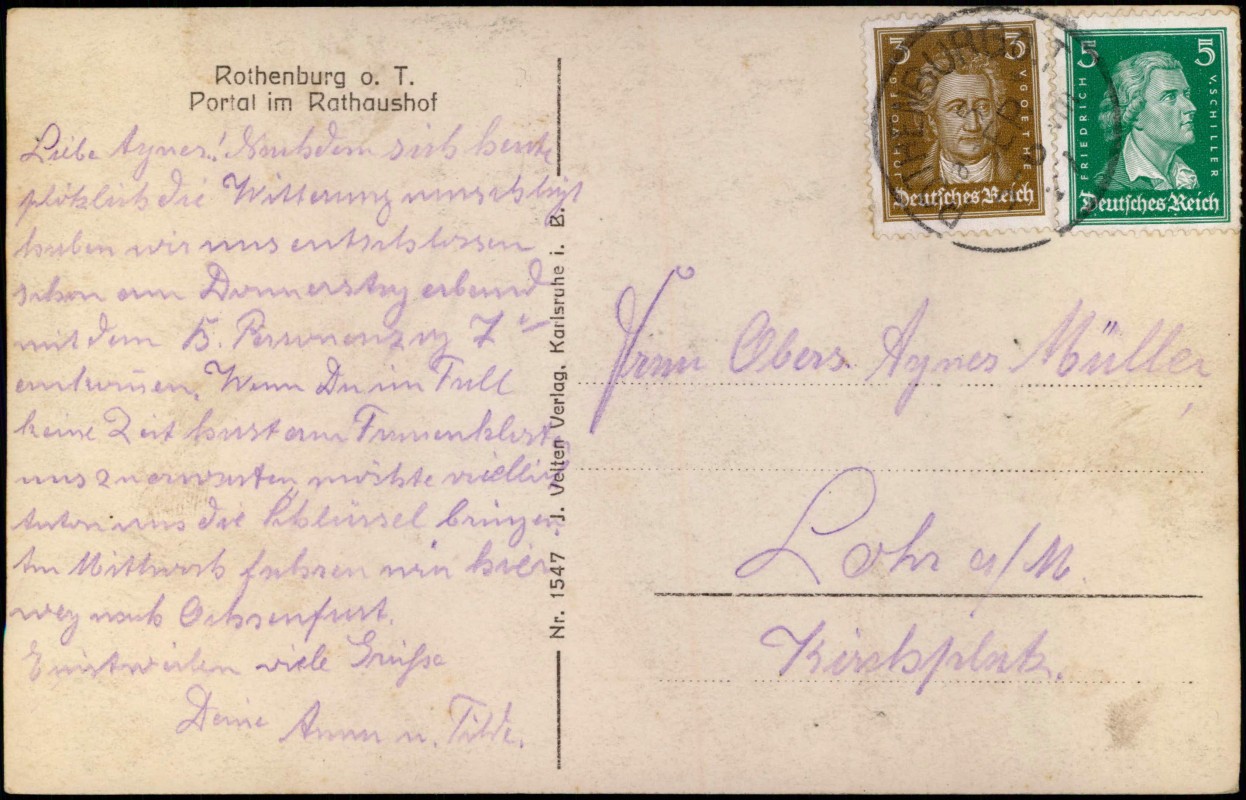 Rothenburg o. T.
Portal im Rathaushof
Liebe Agnes! Nachdem sich heute
plötzlich die Witterung umschlägt
haben wir uns entschlossen
schon am Donnerstag abend
mit dem Personenzug 7
Wenn Du im Fall
keine Zeit hast am Frauenklost
uns zu erwarten möchte
Anton uns die Schlüssel bringen.
Am Mittwoch fahren wir hier
weg nach Ochsenfurt.
Einstweilen viele Grüße
Deine Anna u. Tilde.
Nr. 1547 J. Velten Verlag, Karlsruhe i. B.
3 3
JOH. WOLFG. V. GOETHE
Deutsches Reich
5 5
FRIEDRICH V. SCHILLER
Deutsches Reich
Frau Obers. Agnes Müller,
Lohr a/M.
Kirchplatz.